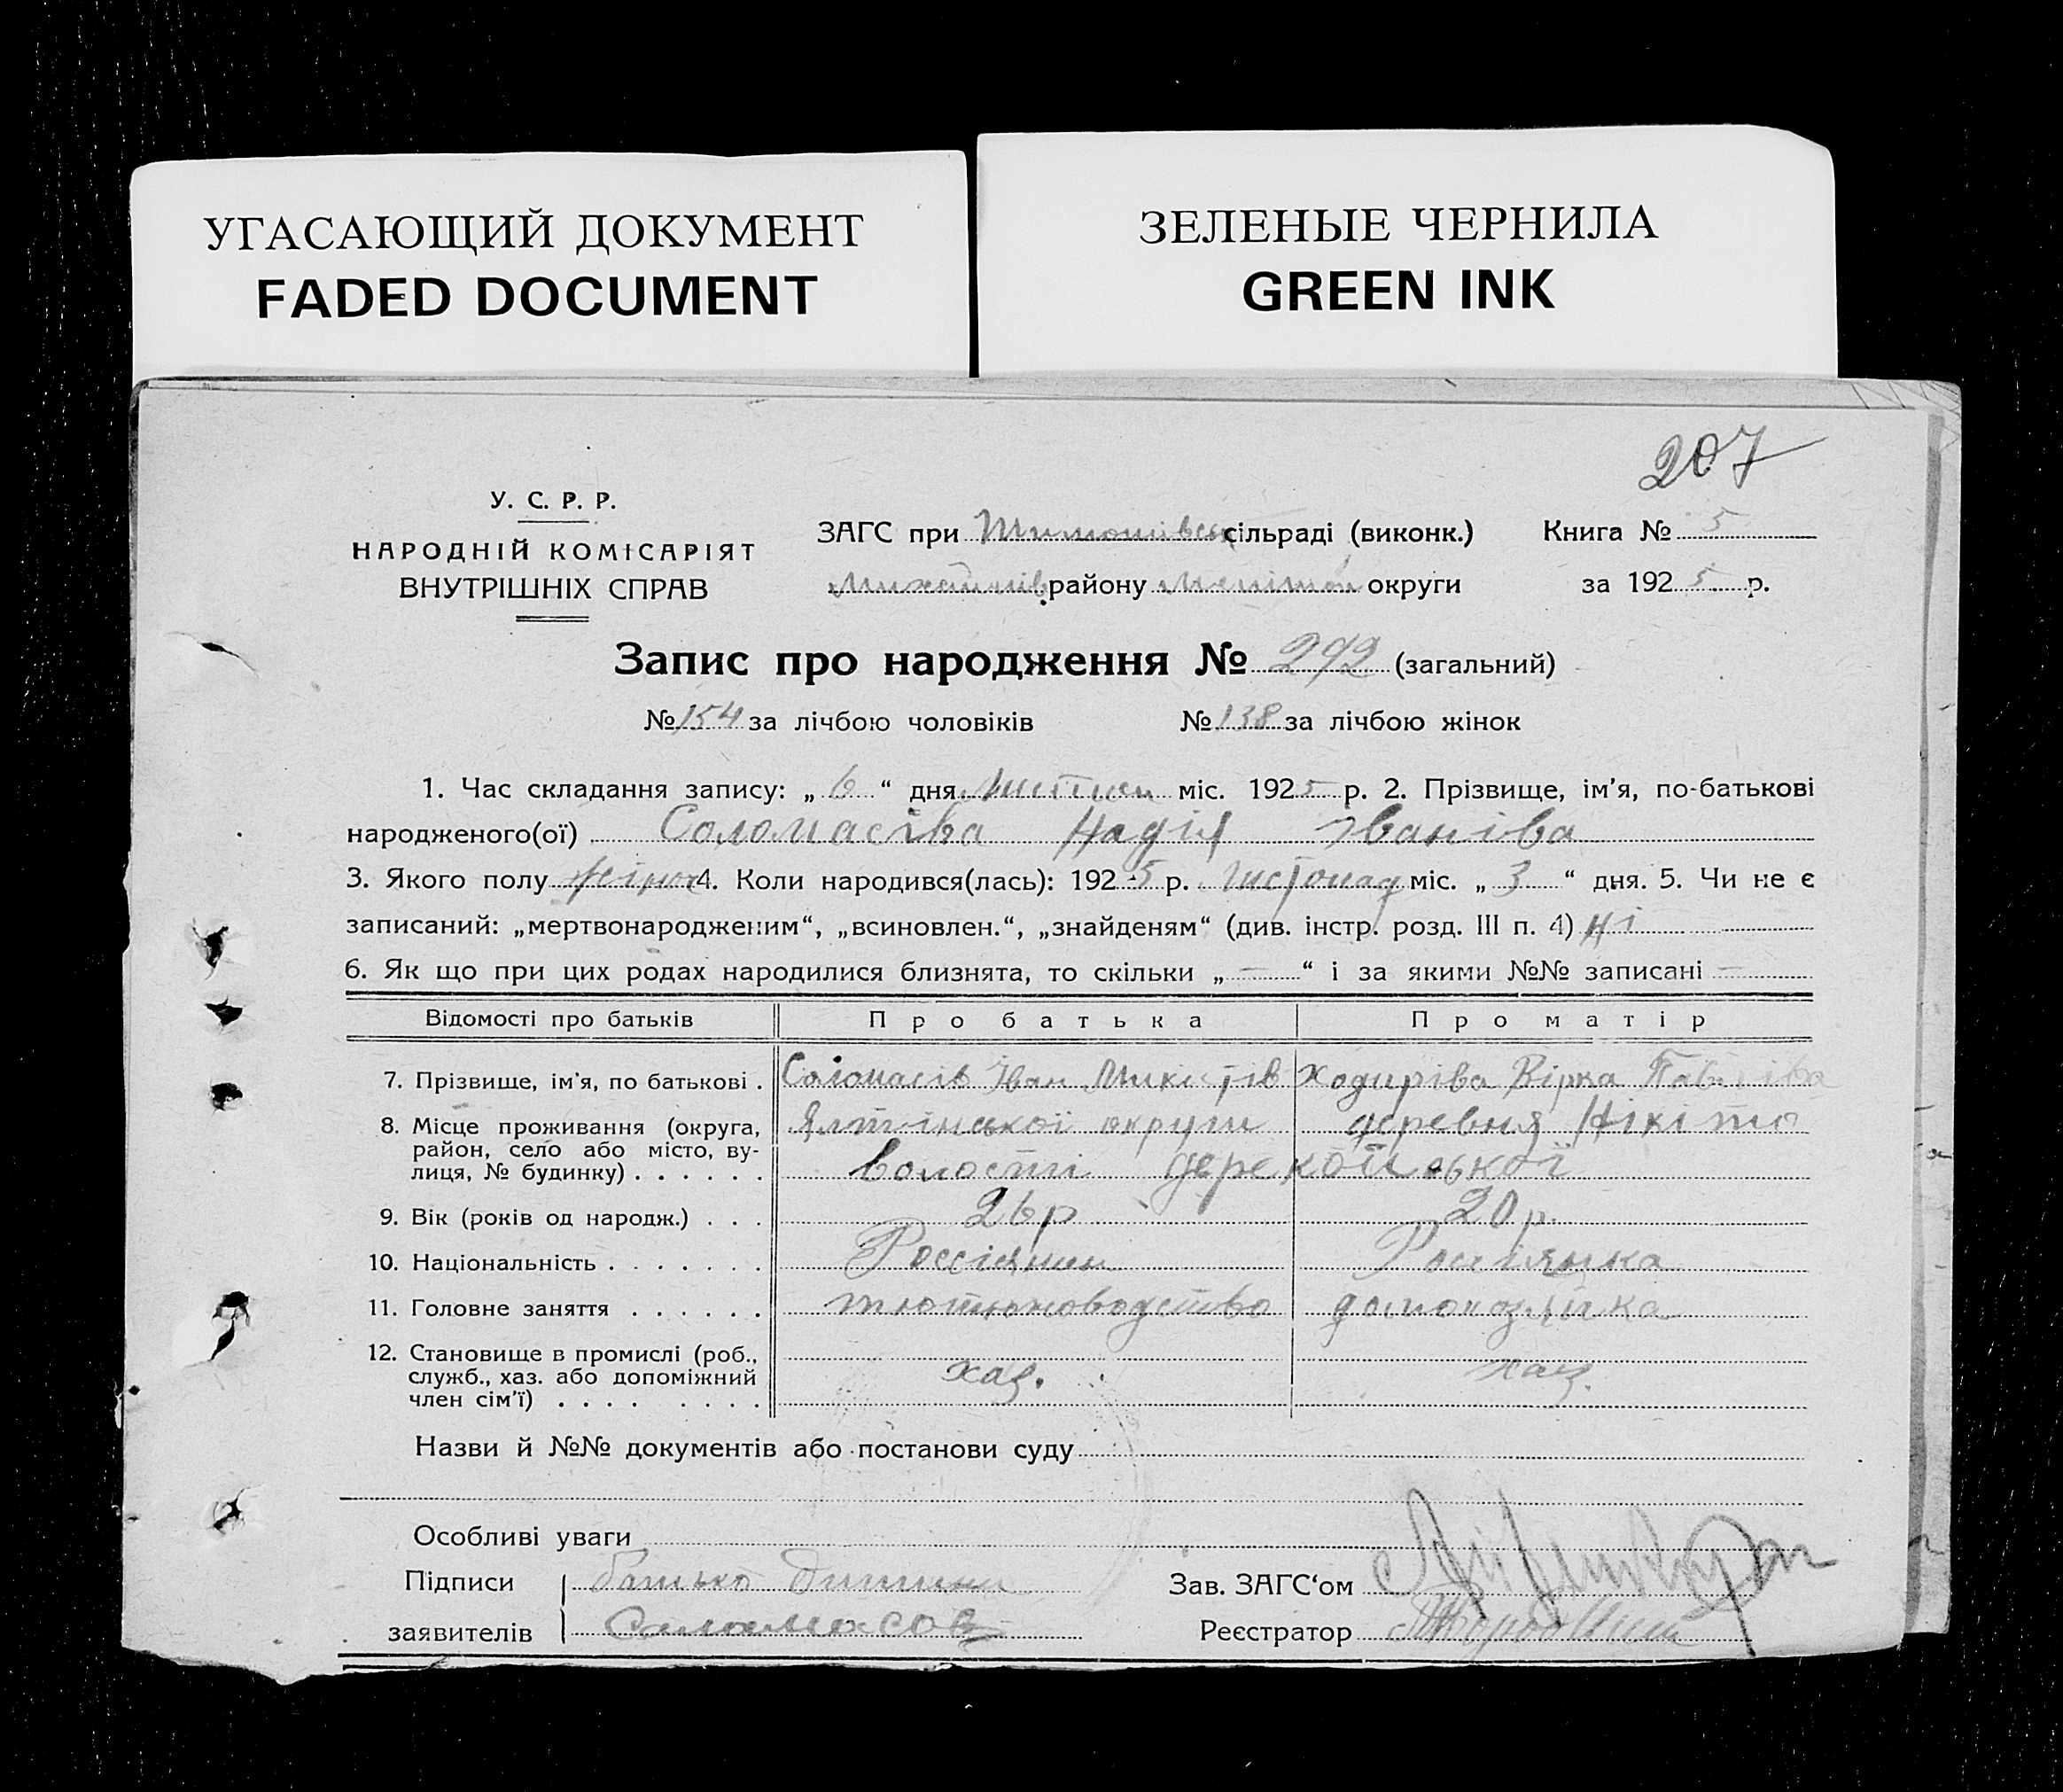 УГАСАЮЩИЙ ДОКУМЕНТ
FADED DOCUMENT
ЗЕЛЕНЫЕ ЧЕРНИЛА
GREEN INK
207
У. С. Р. Р.
НАРОДНІЙ КОМІСАРІЯТ
ВНУТРІШНІХ СПРАВ
ЗАГС при Тимошівськ сільраді (виконк.)
Книга № 5
району округи
за 1925 р.
Запис про народження № 292 (загальний)
№ 154 за лічбою чоловіків № 138 за лічбою жінок
1. Час складання запису: „ 6 “ дня міс. 1925 р. 2. Прізвище, ім’я, по-батькові
народженого(ої) Соломасіва Надія Іваніва
3. Якого полу жіноч 4. Коли народився(лась): 1925 р. Листопад міс. „ 3 “ дня. 5. Чи не є
записаний: „мертвонародженим“, „всиновлен.“, „знайденям“ (див. інстр. розд. III п. 4) Ні
6. Як що при цих родах народилися близнята, то скільки „ — “ і за якими №№ записані —
Відомості про батьків Про батька Про матір
7. Прізвище, ім’я, по батькові . Соломасів Іван Микитів Ходиріва Вірка
8. Місце проживання (округа, Ялтінської округи деревня Нікіто
район, село або місто, ву-
лиця, № будинку) . . . . . . волості дерекойської
9. Вік (років од народж.) . . . 26 р 20 р.
10. Національність . . . . . . . Россіянин Россіянка
11. Головне заняття . . . . . . тютюноводство домохозяйка
12. Становище в промислі (роб.,
служб., хаз. або допоміжний хаз. хаз.
член сім’ї) . . . . . . . .
Назви й №№ документів або постанови суду
Особливі уваги
Підписи батько дитини
Зав. ЗАГС‘ом
заявителів Саламасов
Реєстратор